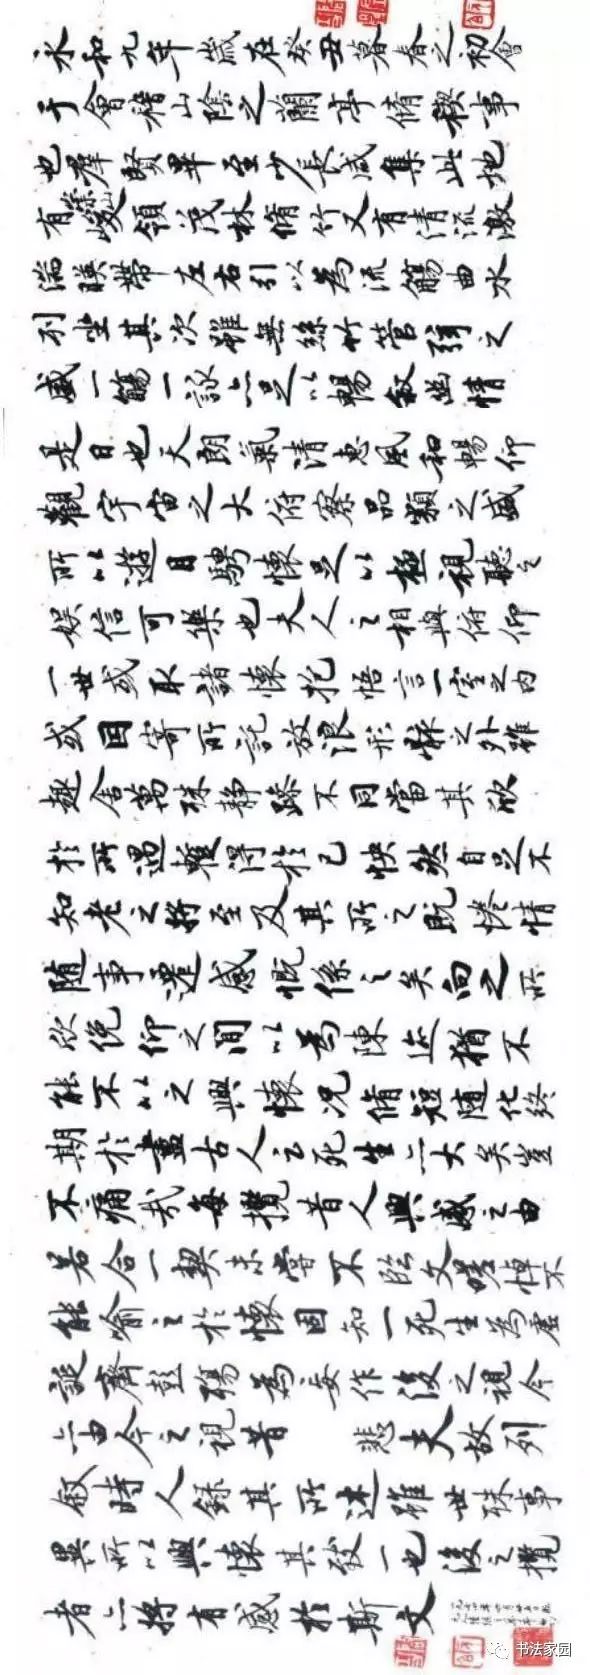 永和九年歲在癸丑暮春之初會
于會稽山陰之蘭亭脩稧事
也羣賢畢至少長咸集此地
有崇山峻領茂林脩竹又有清流激
湍暎帶左右引以為流觴曲水
列坐其次雖無絲竹管弦之
盛一觴一詠亦足以暢敘幽情
是日也天朗氣清惠風和暢仰
觀宇宙之大俯察品類之盛
所以遊目騁懷足以極視聽之
娛信可樂也夫人之相與俯仰
一世或取諸懷抱悟言一室之內
或因寄所託放浪形骸之外雖
趣舍萬殊靜躁不同當其欣
於所遇暫得於己怏然自足不
知老之將至及其所之既惓情
隨事遷感慨係之矣向之所
欣俛仰之間以為陳迹猶不
能不以之興懷況脩短隨化終
期於盡古人云死生亦大矣豈
不痛哉每攬昔人興感之由
若合一契未嘗不臨文嗟悼不
能喻之於懷固知一死生為虛
誕齊彭殤為妄作後之視今
亦由今之視昔 悲夫故列
敘時人錄其所述雖世殊事
異所以興懷其致一也後之攬
者亦將有感於斯文
书法家园